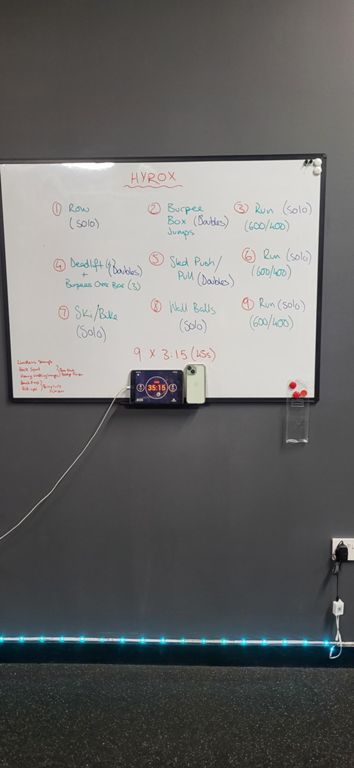 HYROX
① Row (Solo)
② Burpee Box (Doubles) Jumps
③ Run (Solo) (600/400)
④ Deadlift (Doubles) + Burpees Over Bar (3)
⑤ Sled Push/ Pull (Doubles)
⑥ Run (Solo) (600/400)
⑦ Ski/Bike (Solo)
⑧ Wall Balls (Solo)
⑨ Run (Solo) (600/400)
9 x 3.15 (45s)
35:15